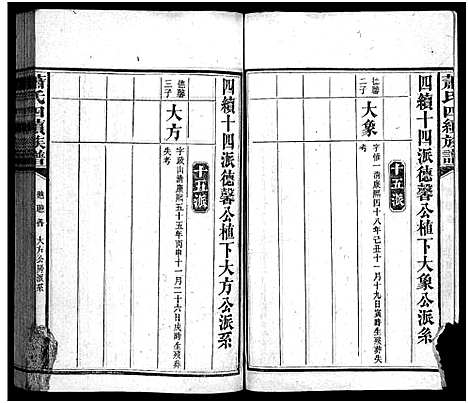 蕭氏四續族譜
四續十四派德馨公植下大象公派系
十五派
德馨
二子
大象
字惟一清康熙四十八年己丑十一月十九日寅時生歿葬失
考
四續十四派德馨公植下大方公派系
十五派
德馨
三子
大方
字政山清康熙五十五年丙申十一月二十六日戌時生歿葬
失考
蕭氏四續族譜
大方公房派系